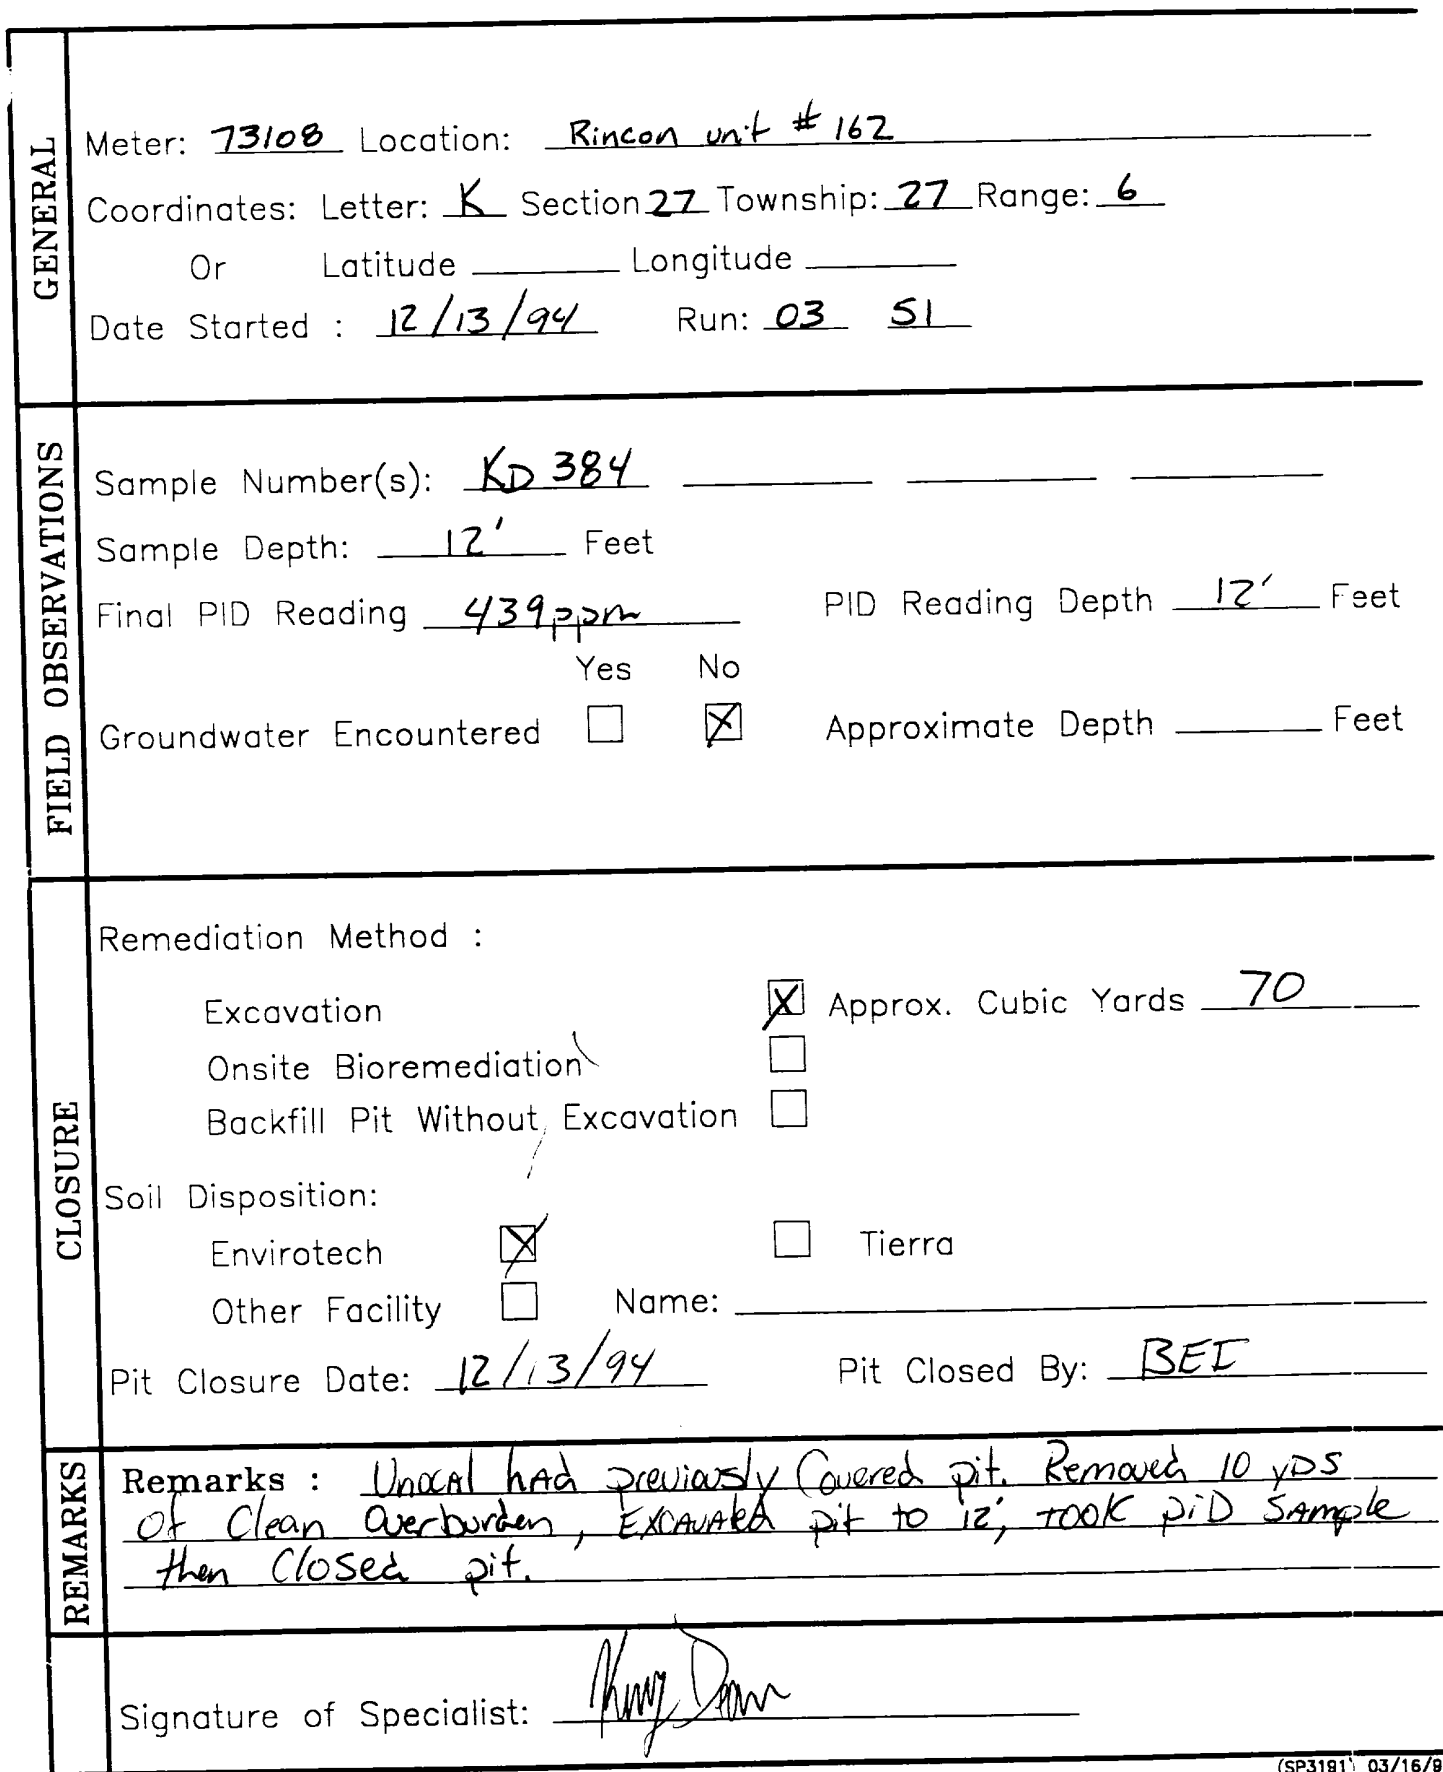 GENERAL
Meter: 73108 Location: Rincon unit # 162
Coordinates: Letter: K Section 27 Township: 27 Range: 6
Or Latitude Longitude
Date Started : 12/13/94 Run: 03 51
FIELD OBSERVATIONS
Sample Number(s): KD 384
Sample Depth: 12' Feet
Final PID Reading 439ppm PID Reading Depth 12' Feet
Yes No
Groundwater Encountered Approximate Depth Feet
CLOSURE
Remediation Method :
Excavation Approx. Cubic Yards 70
Onsite Bioremediation
Backfill Pit Without Excavation
Soil Disposition:
Envirotech Tierra
Other Facility Name:
Pit Closure Date: 12/13/94 Pit Closed By: BEI
REMARKS
Remarks : Unocal had previously Covered pit. Removed 10 yDS
Of Clean Overburden, Excavated pit to 12', TOOK PiD SAmple
then Closed pit.
Signature of Specialist:
(SP3191) 03/16/9